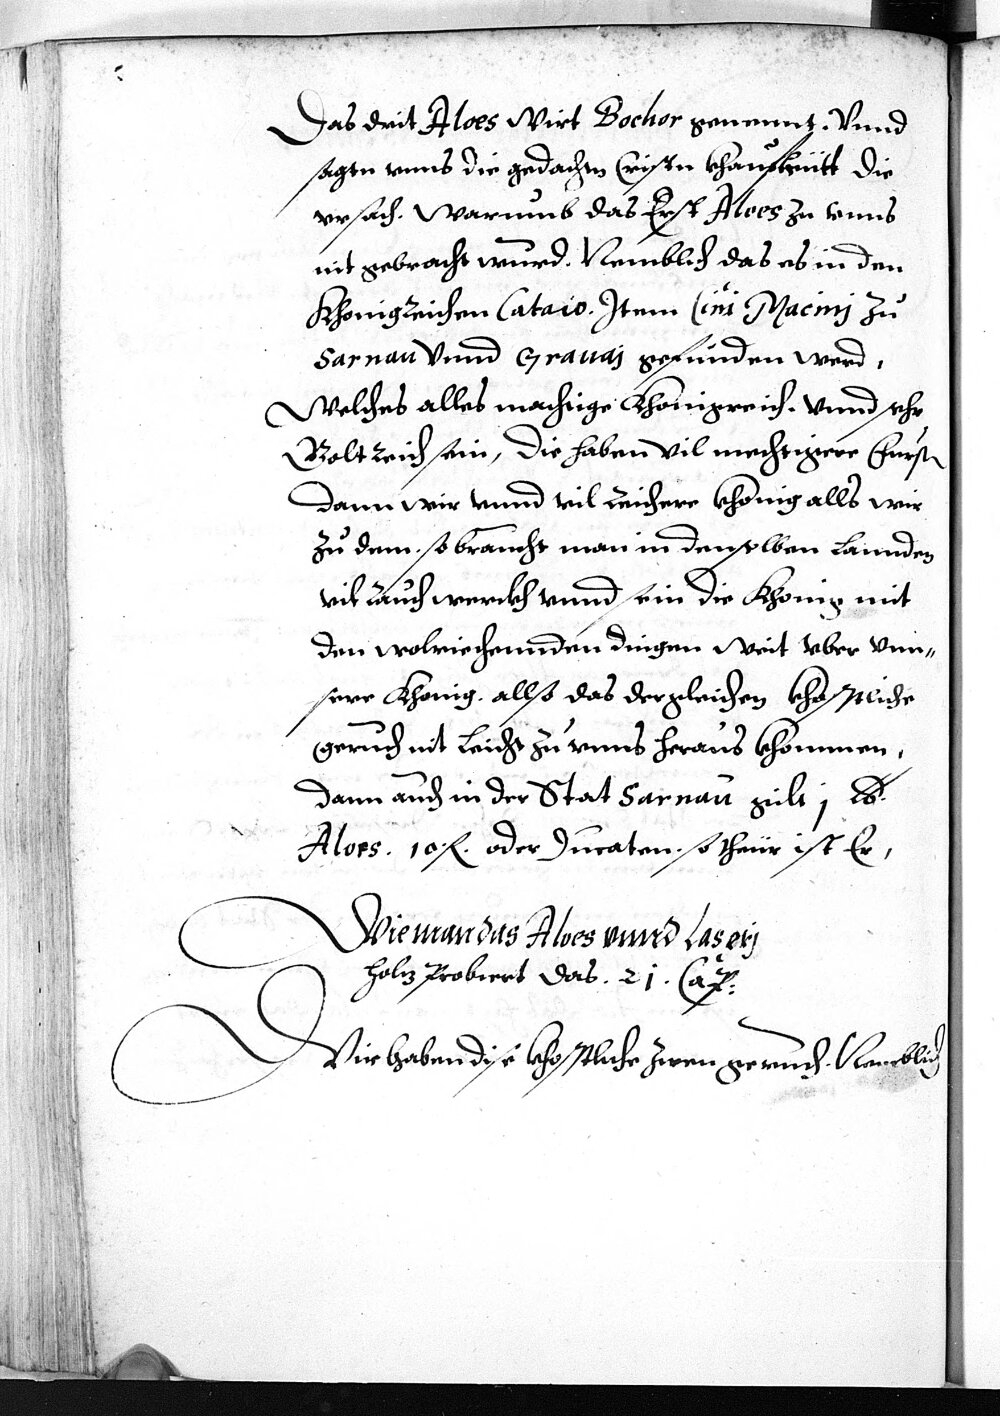 Das drit Aloes Wirt Bochor genennt. Vnnd
sagtn vnns die gedachtn Cristn khaufleütt die
vrsach. Warumb das Erst Aloes zu vnns
nit gebracht wurd. Nemblich das es in den
Khonigreichen Cataio. Item Cini Macinj zu
Sarnau Vnnd Grauaj gefunden werd,
Welches alles machtige Khönigreich. vnnd sehr
Volkreich sein, Die haben vil mechtigere Fursten
Dann wir vnnd vil reichere khönig alls wir
Zu dem. so braucht man in denselben Lannden
vil rauch werckh vnnd sein die Khonig mit
den wolriechennden dingen weit vber vnn„
sere Khönig. allso das dergleichen khostliche
geruch nit leicht zu vnns heraus khommen,
Dann auch in der Stat Sarnau gilt j lb.
Aloes. 10. f. oder Ducaten. so theür ist Er,
Wie man das Aloes vnnd Laserj
holz Probiert das. 21. Cap:
Wir haben dise khostliche zwen geruch. Nemblich